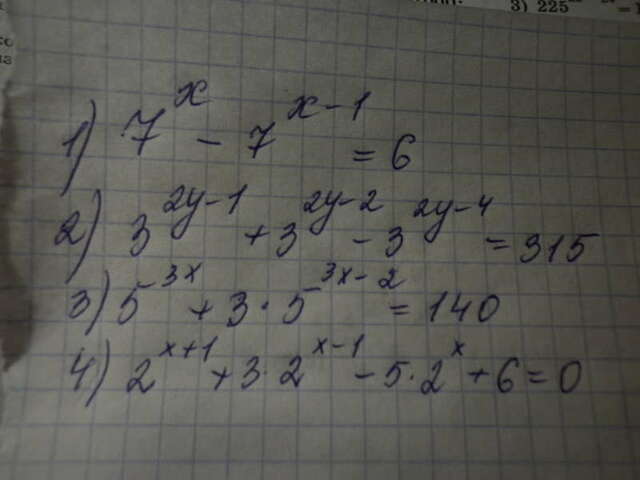 3) 225
1) 7^x - 7^{x-1} = 6
2) 3^{2y-1} + 3^{2y-2} - 3^{2y-4} = 315
3) 5^{3x} + 3 · 5^{3x-2} = 140
4) 2^{x+1} + 3 · 2^{x-1} - 5 · 2^x + 6 = 0